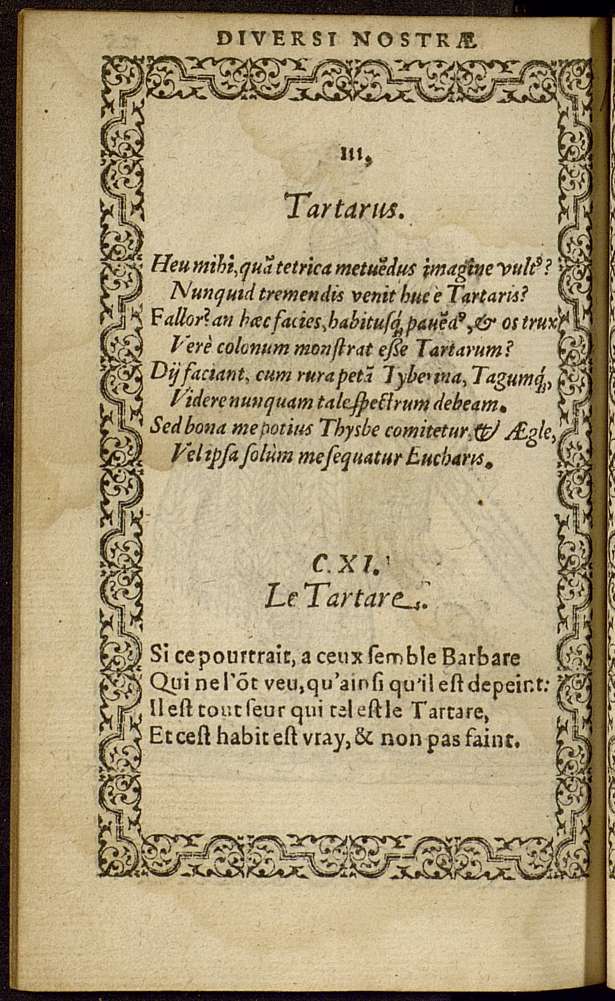 DIVERSI NOSTRÆ
III.
Tartarus.
Heu mihi, quā tetrica metuēdus imagine vultꝰ?
Nunquid tremendis venit huc è Tartaris?
Fallor? an hæc facies, habitusq́, pauēdꝰ, & os trux
Verè colonum monstrat esse Tartarum?
Dij faciant, cum rura petā Tyberina, Tagumq́,
Videre nunquam tale spectrum debeam.
Sed bona me potius Thysbe comitetur, & Ægle,
Vel ipsa solùm me sequatur Eucharis.
CXI.
Le Tartare.
Si ce pourtrait, a ceux semble Barbare
Qui ne l'ōt veu, qu'ainsi qu'il est depeint:
Il est tout seur qui tel est le Tartare,
Et cest habit est vray, & non pas faint.